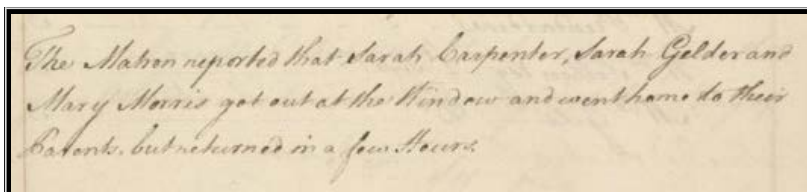 The Matron reported that Sarah Carpenter, Sarah Gelder and
Mary Morris got out at the Window and went home to their
Parents. but returned in a few Hours.